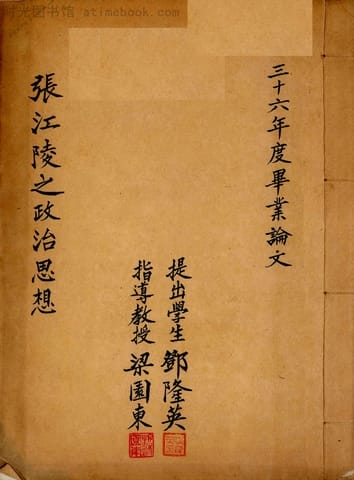 时光图书馆 atimebook.com
三十六年度畢業論文
提出學生 鄧隆英
指導教授 梁園東
張江陵之政治思想